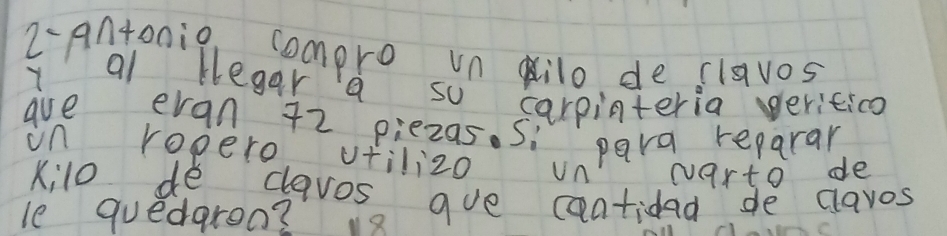 2-Antonio compro un kilo de clavos
y al llegar a su carpinteria verifico
que eran 72 piezas. Si para reparar
un ropero utilizo un cuarto de
kilo de clavos que cantidad de clavos
le quedaron? 18